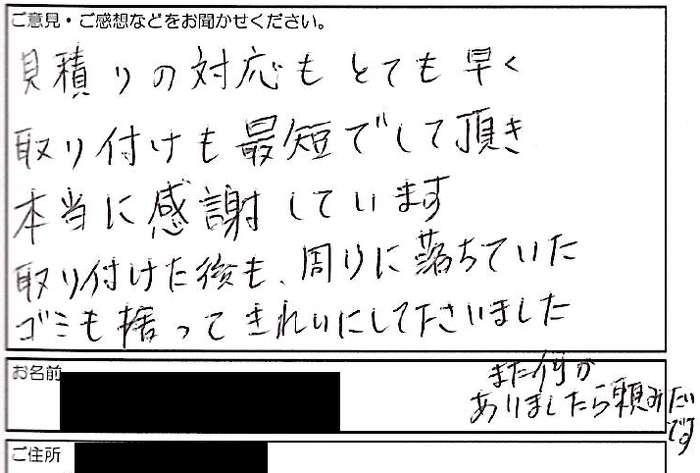 ご意見・ご感想などをお聞かせください。
見積りの対応もとても早く
取り付けも最短でして頂き
本当に感謝しています
取り付けた後も、周りに落ちていた
ゴミも捨ってきれいにしてださいました
お名前
また何か
ありましたら頼みたい
です
ご住所